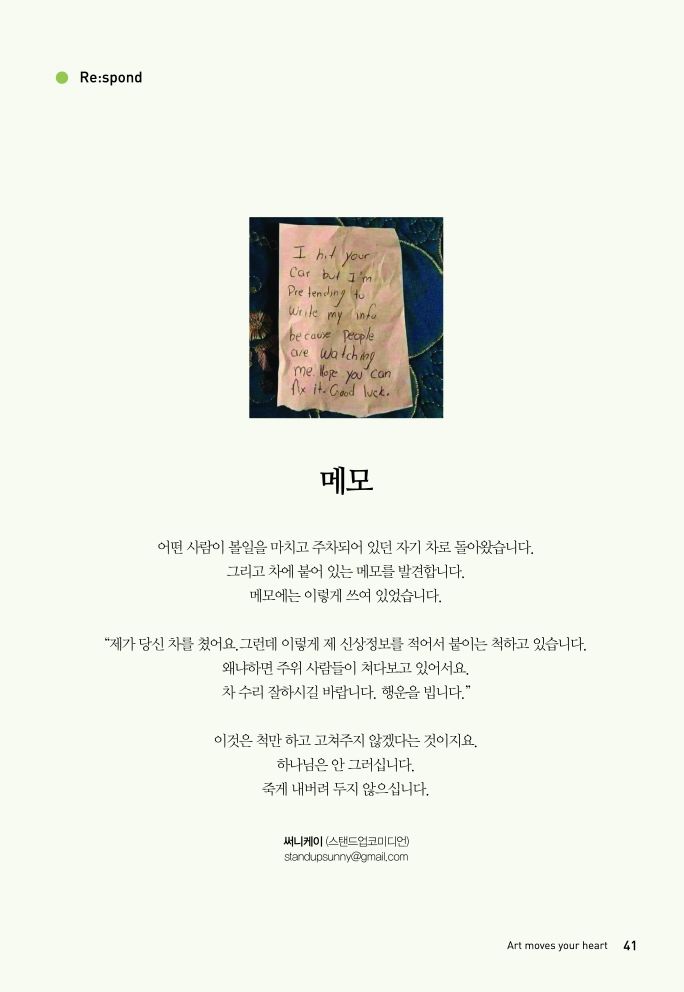 Re:spond
I hit your
Car but I'm
Pretending to
Write my info
because people
are watching
me. Hope you can
fix it. Good luck.
메모
어떤 사람이 볼일을 마치고 주차되어 있던 자기 차로 돌아왔습니다.
그리고 차에 붙어 있는 메모를 발견합니다.
메모에는 이렇게 쓰여 있었습니다.
“제가 당신 차를 쳤어요.그런데 이렇게 제 신상정보를 적어서 붙이는 척하고 있습니다.
왜냐하면 주위 사람들이 쳐다보고 있어서요.
차 수리 잘하시길 바랍니다. 행운을 빕니다.”
이것은 척만 하고 고쳐주지 않겠다는 것이지요.
하나님은 안 그러십니다.
죽게 내버려 두지 않으십니다.
써니케이 (스탠드업코미디언)
standupsunny@gmail.com
Art moves your heart 41